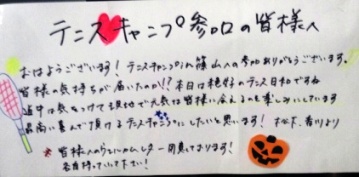 テニスキャンプ参加の皆様へ
おはようございます！テニスキャンプin篠山への参加ありがとうございます。
皆様の気持ちが届いたのか!? 本日は絶好のテニス日和ですね
道中は気をつけて現地で元気な皆様に会えるのを楽しみにしています
最高に喜んで頂けるテニスキャンプにしたいと思います！ 松下、香川より
★ 皆様へのウェルカムレター 用意しております！
各自持っていって下さい！